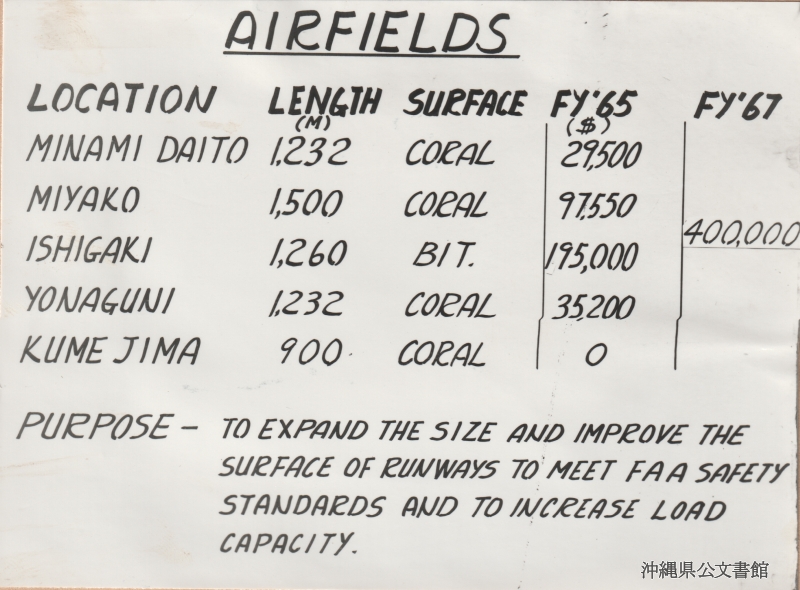 AIRFIELDS
LOCATION LENGTH (M) SURFACE FY'65 ($) FY'67
MINAMI DAITO 1,232 CORAL 29,500
MIYAKO 1,500 CORAL 97,550
400,000
ISHIGAKI 1,260 BIT. 195,000
YONAGUNI 1,232 CORAL 35,200
KUME JIMA 900 CORAL 0
PURPOSE - TO EXPAND THE SIZE AND IMPROVE THE
SURFACE OF RUNWAYS TO MEET FAA SAFETY
STANDARDS AND TO INCREASE LOAD
CAPACITY.
沖縄県公文書館